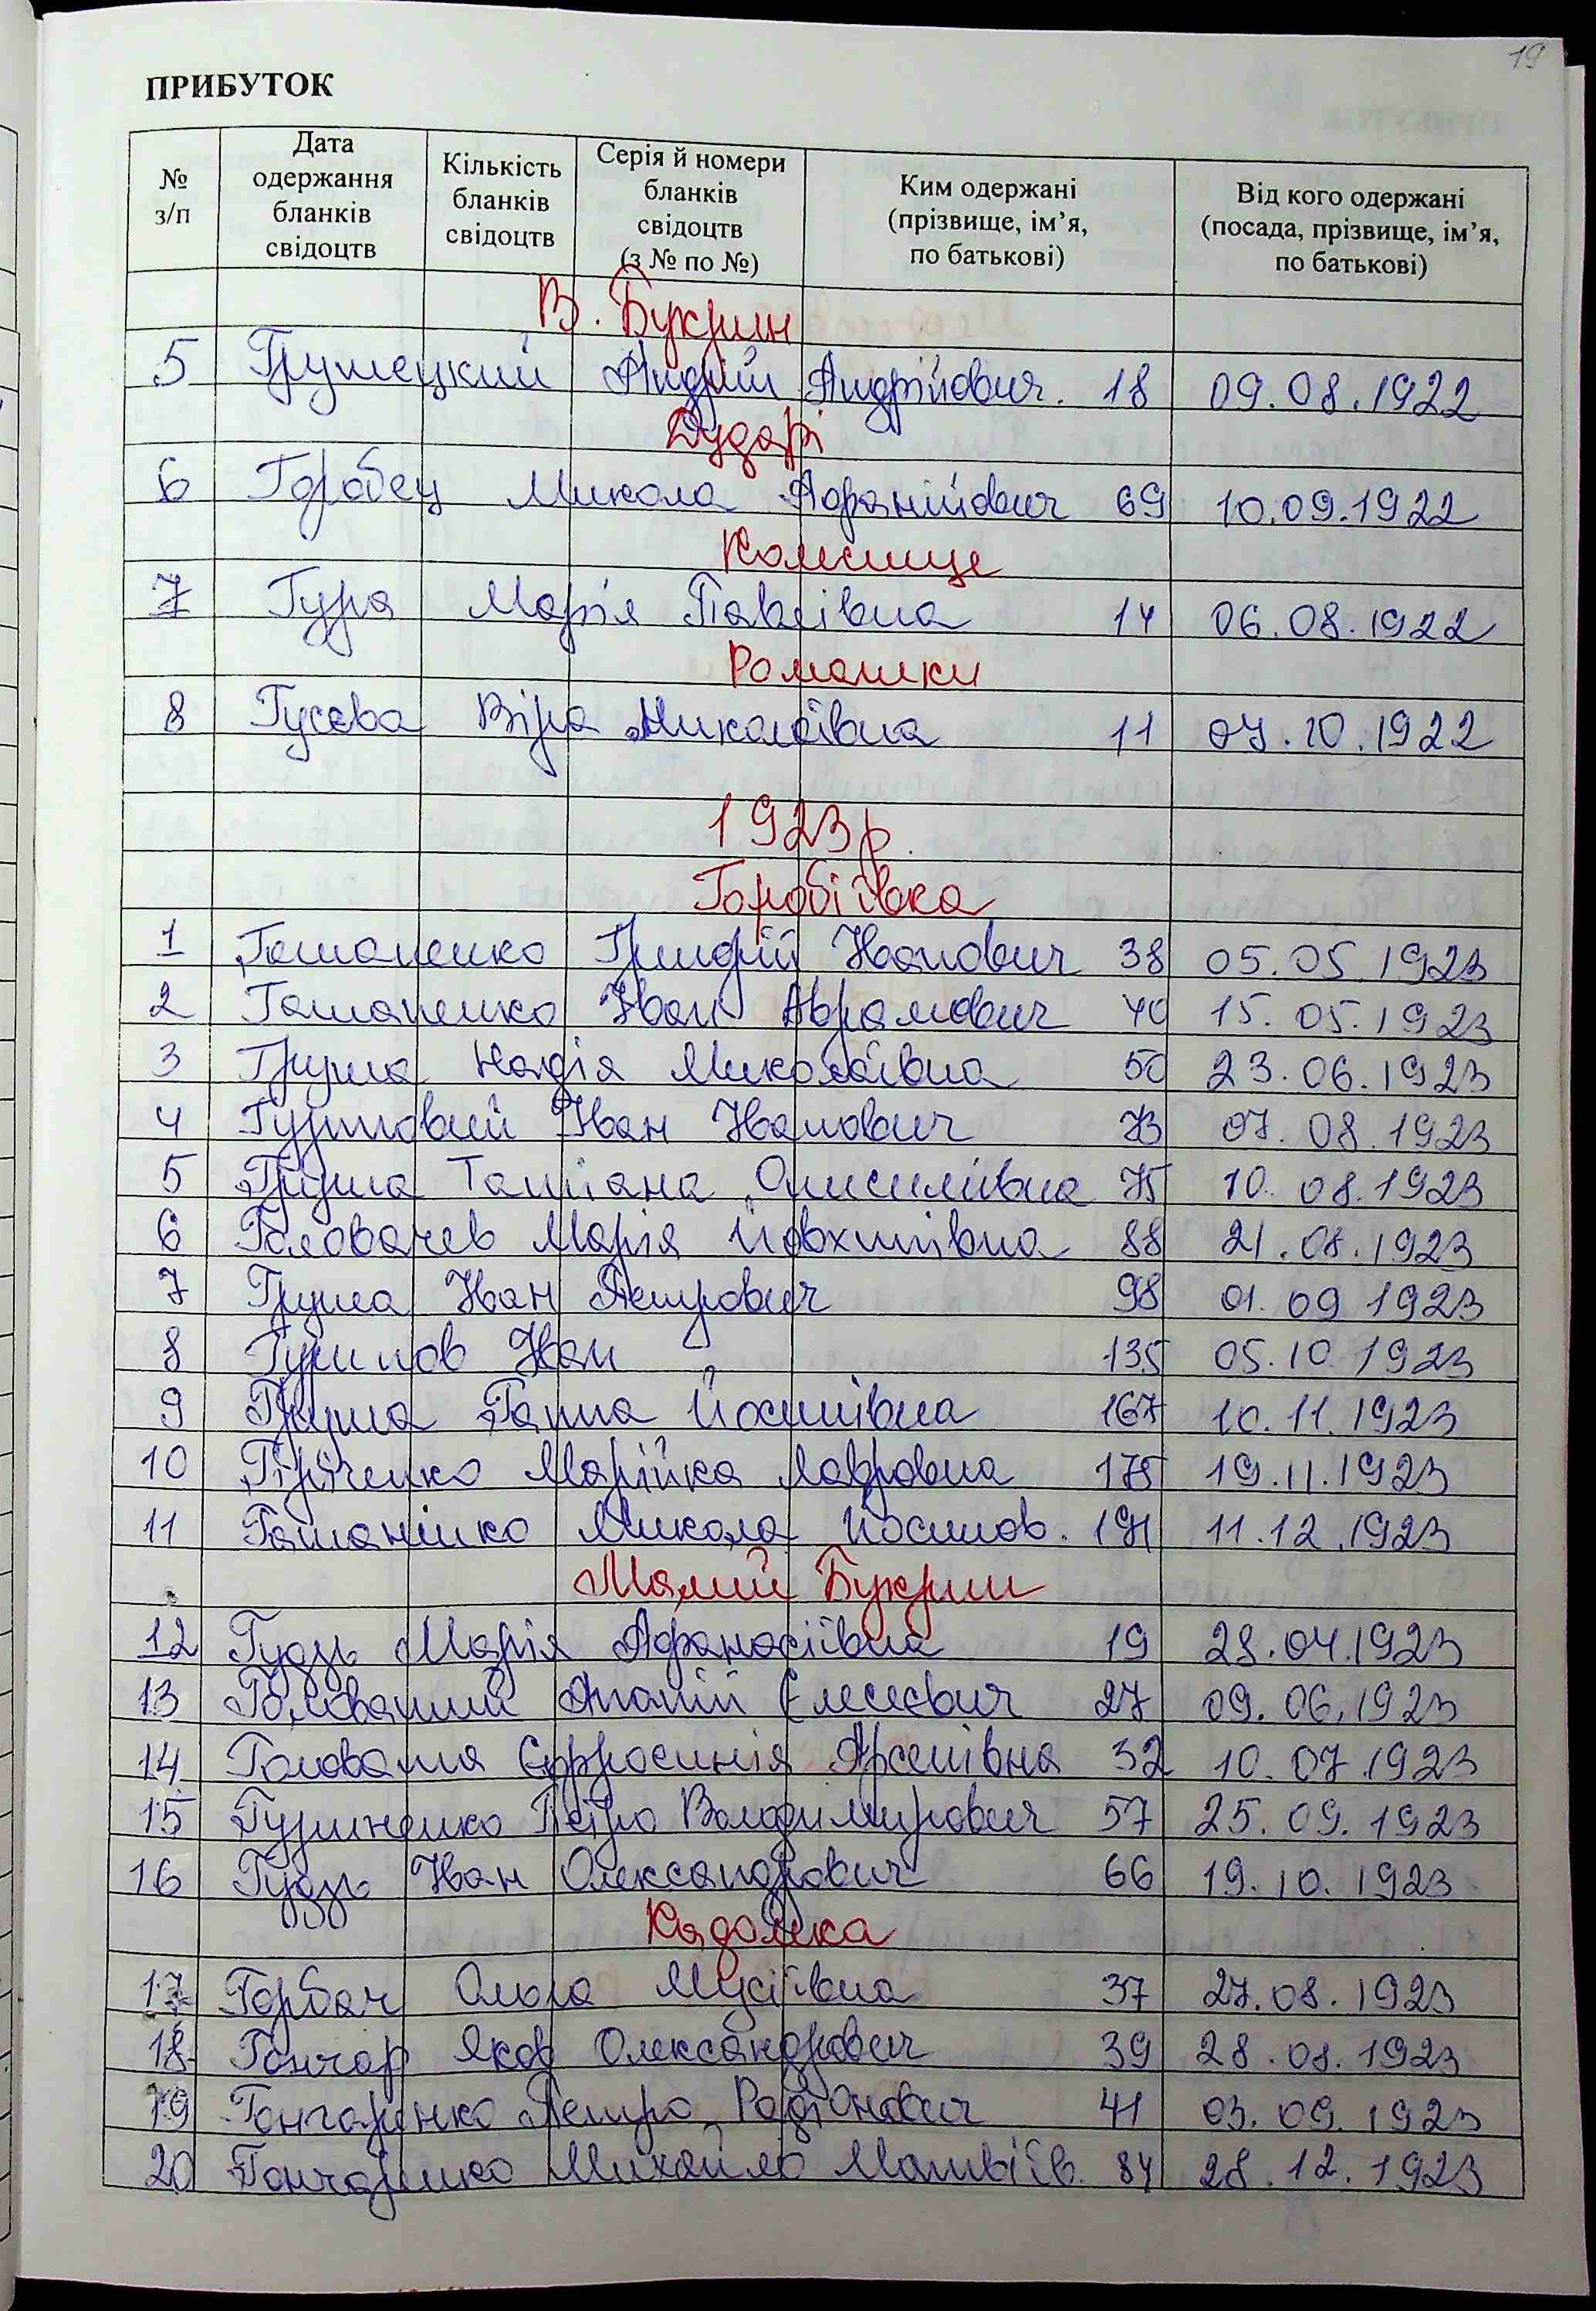 19
ПРИБУТОК
№ з/п
Дата одержання бланків свідоцтв
Кількість бланків свідоцтв
Серія й номери бланків свідоцтв (з № по №)
Ким одержані (прізвище, ім’я, по батькові)
Від кого одержані (посада, прізвище, ім’я, по батькові)
В. Букрин
5 Грушецкий Андрій Андрійович. 18 09.08.1922
Дударі
6 Горобец Микола 69 10.09.1922
Колесище
7 Гура Марія Павлівна 14 06.08.1922
Ромашки
8 Гусєва Віра Миколаївна 11 07.10.1922
1923р.
Горобіївка
1 Гашаненко Іванович 38 05.05.1923
2 Гашаненко Іван Аврамович 40 15.05.1923
3 Груша Надія Миколаївна 50 23.06.1923
4 Гуртовий Іван Іванович 73 07.08.1923
5 Груша Татіана Онисимівна 75 10.08.1923
6 Головачев Марія 88 21.08.1923
7 Груша Іван Петрович 98 01.09.1923
8 Іван 135 05.10.1923
9 Груша Ганна Йосипівна 167 10.11.1923
10 Марійка Лавровна 175 19.11.1923
11 Микола Йосипов. 191 11.12.1923
Малий Букрин
12 Гудзь Марія Афанасіївна 19 28.04.1923
13 Голований 27 09.06.1923
14 Головатия Єфросинія Арсенівна 32 10.07.1923
15 Петро Володимирович 57 25.09.1923
16 Гудзь Іван Олександрович 66 19.10.1923
Кадомка
17 Горбач Ольга Мусіївна 37 27.08.1923
18 Гончар Яков Олександрович 39 28.08.1923
19 Гончаренко Петро Родіонович 41 03.09.1923
20 Гончаренко Михайло Матвіїв. 84 28.12.1923